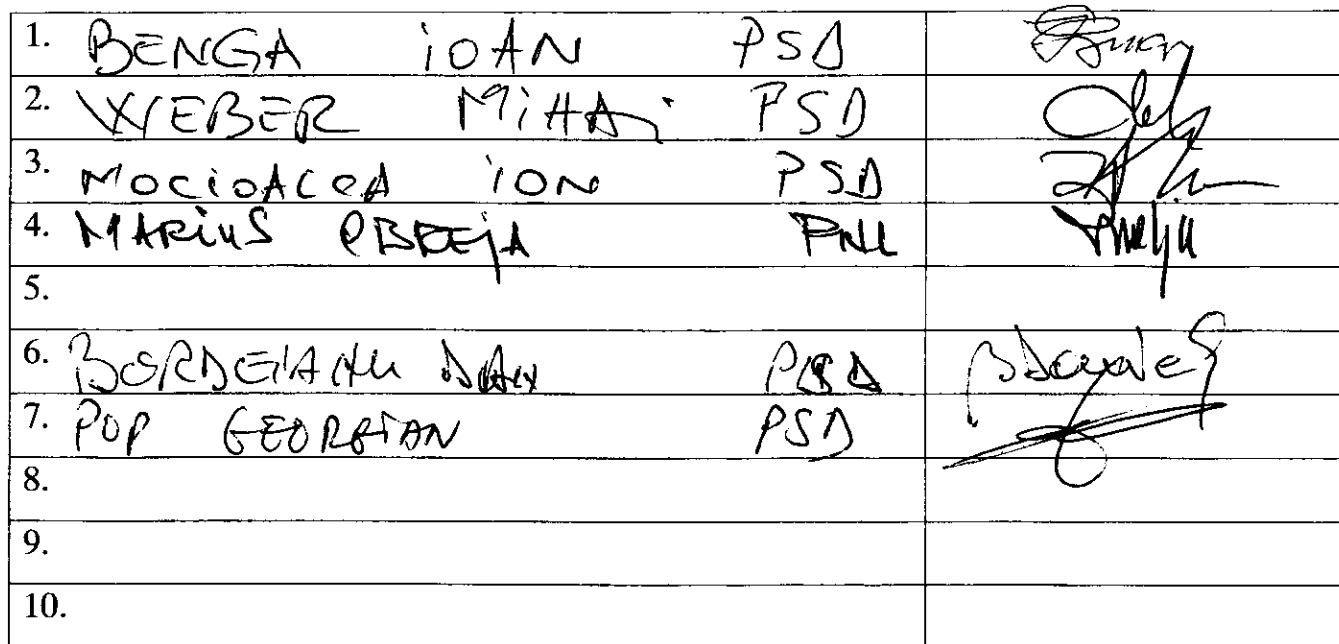 1. BENGA iOAN PSD
2. WEBER MiHAi PSD
3. MOCiOALCA iON PSD
4. MARiUS OBREjA PNL
5.
6. BORDEIANU DAN PSD
7. POP GEORGIAN PSD
8.
9.
10.